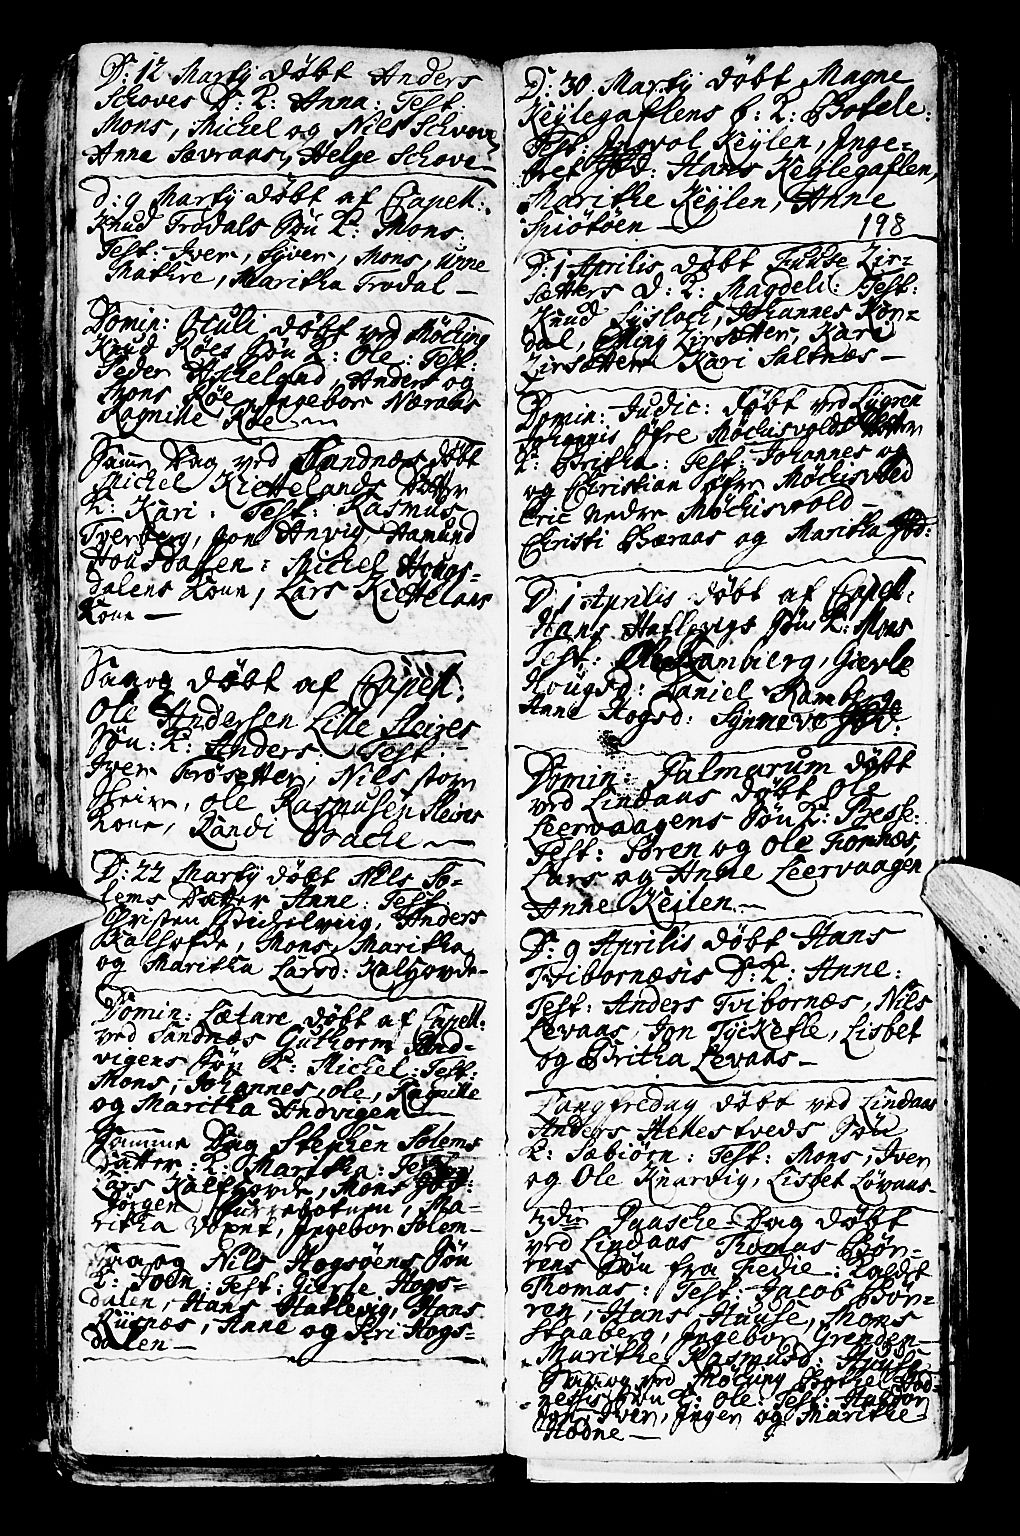 D: 12 Martÿ døbt Anders
Schoves D: K: Anna: Test:
Mons, Michel og Nils Schove
Anne Sævraas, Helge Schove
D: 9 Martÿ døbt af Capell:
Knud Trodals Søn K: Mons.
Test: Iver, Siver, Mons, Anne
Mathre, Maritha Trodal
Domin: Oculi døbt ved Møcking
Knud Røes Søn K: Ole: Test:
Peder, Anders og
Mons Røe, Ingebor Næraas
Ragnilde Røe
Samme Dag ved Sandnæs døbt
Michel Kiettelands Datter
K: Kari. Test: Rasmus
Tverberg, Jon Anvig, Hamund
Housdallen: Michel Hougs-
dalens Kone, Lars Kiettelans
Kone
Saa og døbt af Capell:
Ole Andersen Lille Steines
Søn: K: Anders. Test
Iver Frøsetter, Nils store
Ole Rasmusen Steines
Kone, Randi Bache
D: 22 Martÿ døbt Nils So-
lems Datter Anne: Test
Christen, Anders
Kalsofde, Mons, Maritha
og Maritha Larsd: Kalsovde
Domin: Lætare døbt af Capell:
ved Sandnæs Guthorm And-
vigens Søn K: Michel: Test:
Mons, Johannes, Ole, Ragnilde
og Maritha Andvigen
Samme Dag Stephen Solems
Datter: K: Maritha: Test:
Lars Kalsovde, Mons
Jørgen Furrebotnen, Ma-
ritha, Ingebor Solem
Saa og Nils Hogsøens Søn
K: John: Test: Gierle Hogs-
dalen, Hans Hatlevig, Hans
Risnæs, Anne og Siri Hogs-
dalen
D: 30 Martÿ døbt Magne
Keÿlegaflens D: K: Botele:
Test: Ingvol Keÿlen, Inge-
bret: Hans Keÿlegaflen,
Marithe Keÿlen, Anne
Skiøtøen
198
D: 1 Aprilis døbt Fuhse Zir-
sætters D: K: Magdeli: Test:
Knud Lislach, Johannes Kon-
dal, Elling Zirsætter, Kari
Zirsætter Kari Saltnæs
Domin: Judic: døbt ved Lÿgren
Johannis Øfre Møchisvolds Datter
K: Britha: Test: Johannes og
og Christian øfre Møchisvold
Eric Nedre Møchisvold
Christi Bæraas og Maritha
D: 1 Aprilis døbt af Capell.
Hans Hatlevigs Søn K: Mons
Test: Ole Ramberg, Gierle
Hougsd: Daniel Ramberg
Anne Hogsd: Synneve
Domin: Palmarum døbt
ved Lindaas døbt Ole
Leervaagens Søn K: Besse:
Test: Søren og Ole Fornæs,
Lars og Anne Leervaagen
Anne Keilen
D: 9 Aprilis døbt Hans
Tvibornæsis D: K: Anne:
Test: Anders Tvibornæs, Nils
Levaas, Jon Tÿcketle, Lisbet
og Britha Levaas
Langfredag døbt ved Lindaas
Anders Hellestveds Søn
K: Sæbiørn: Test: Mons, Iver
og Ole Knarvig, Lisbet Løvaas
3die Paasche-Dag døbt
ved Lindaas Thomas Bør-
rens Søn fra Fedie: Kaldt
Thomas: Test: Jacob Bør-
ren, Hans Huuse, Mons
Staaberg, Ingebor Grenden
Marithe Rasmusd: Huuse
Saa og ved Møcking Botel Hod-
nesis Søn K: Ole: Test: Haldor
Iver, Inger og Marithe
Hodne